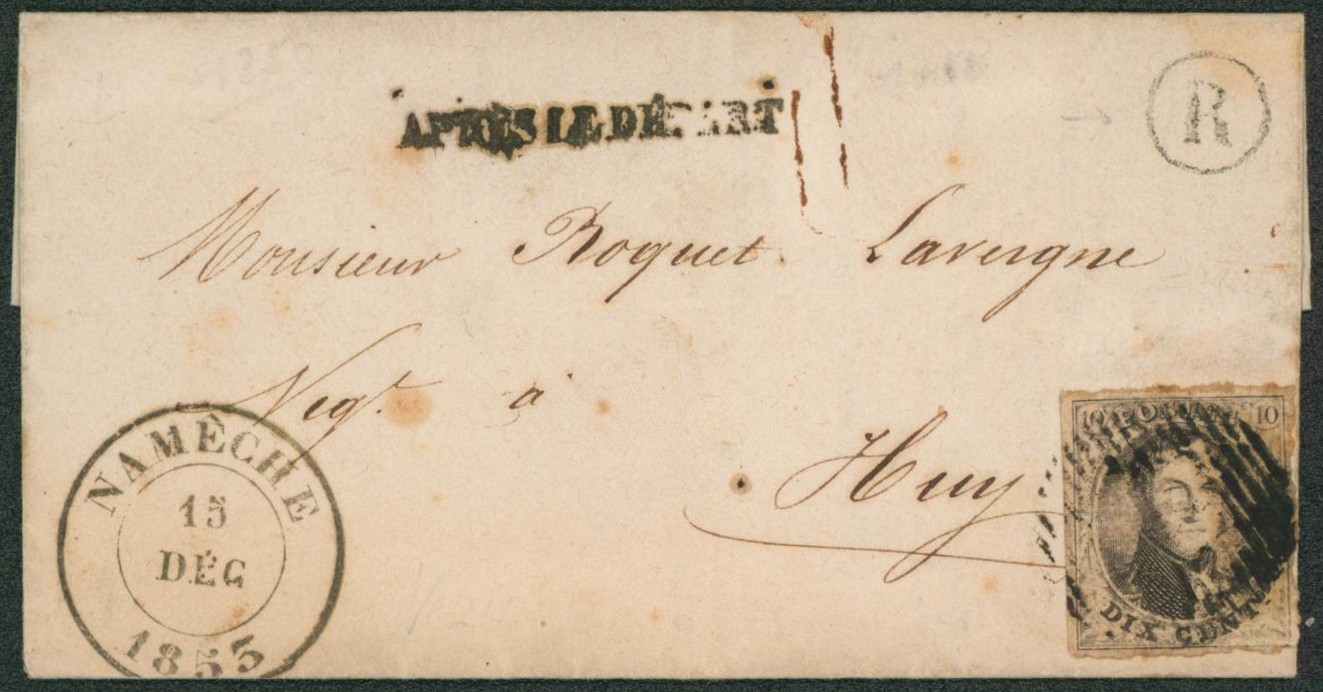 APRÈS LE DÉPART
R
Monsieur Roquet Lavergne
Negt. à
Huy
NAMÈCHE
15
DÉC
1853
10 POSTES 10
DIX CENT